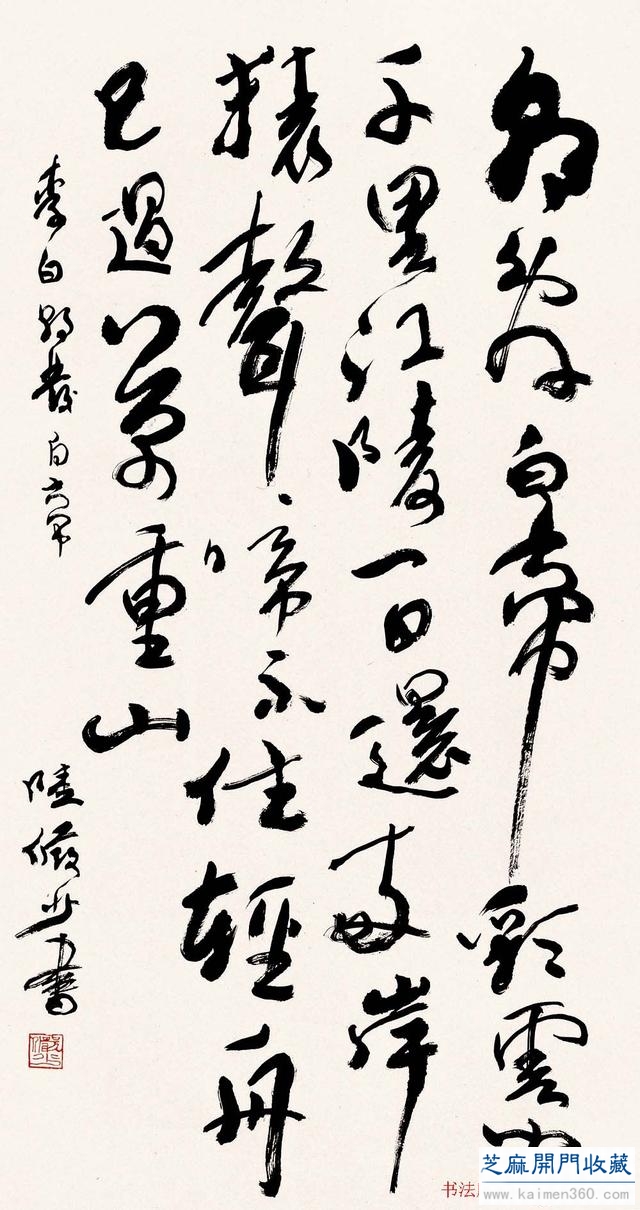 朝辭白帝彩雲間
千里江陵一日還兩岸
猿聲啼不住輕舟
已過萬重山
李白朝發白帝
陸儼少書
书法
芝麻開門收藏
www.kaimen360.com